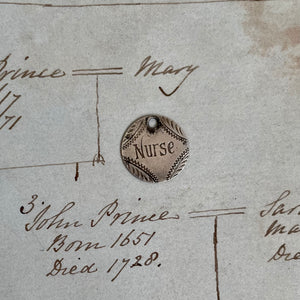 Prince = Mary
17
71
Nurse
3 John Prince =
Born 1651
Died 1728.